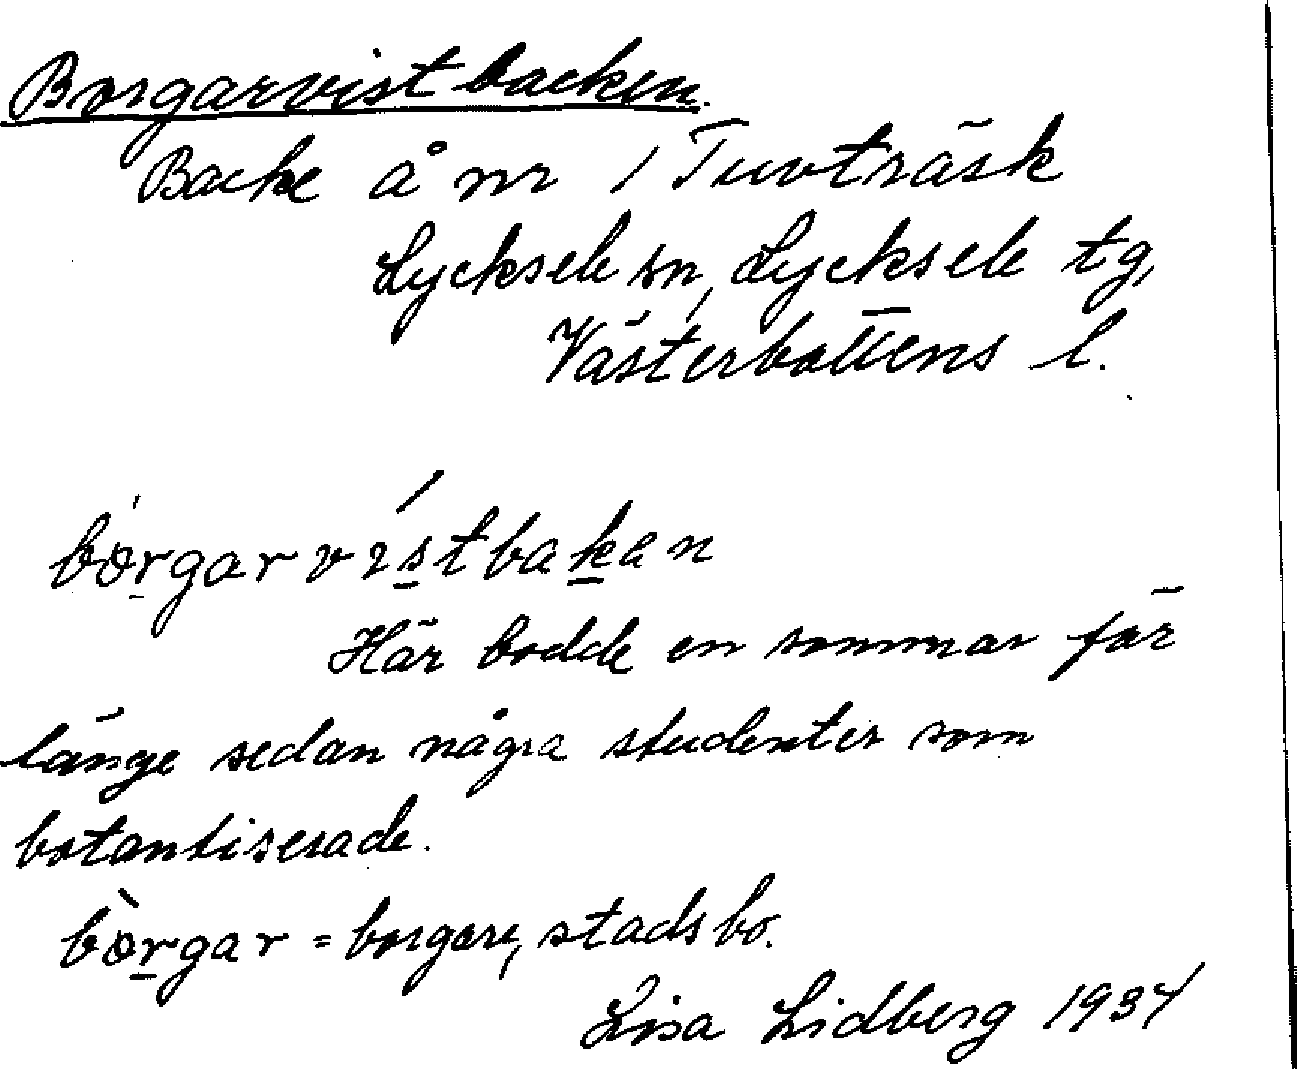 Borgarvistbacken.
Backe å nr 1 Tuvträsk
Lycksele sn, Lycksele tg,
Västerbottens l.
bórgarvístbakan
Här bodde en sommar för
länge sedan några studenter som
botaniserade.
bòrgar = borgare, stadsbo.
Lisa Lidberg 1934